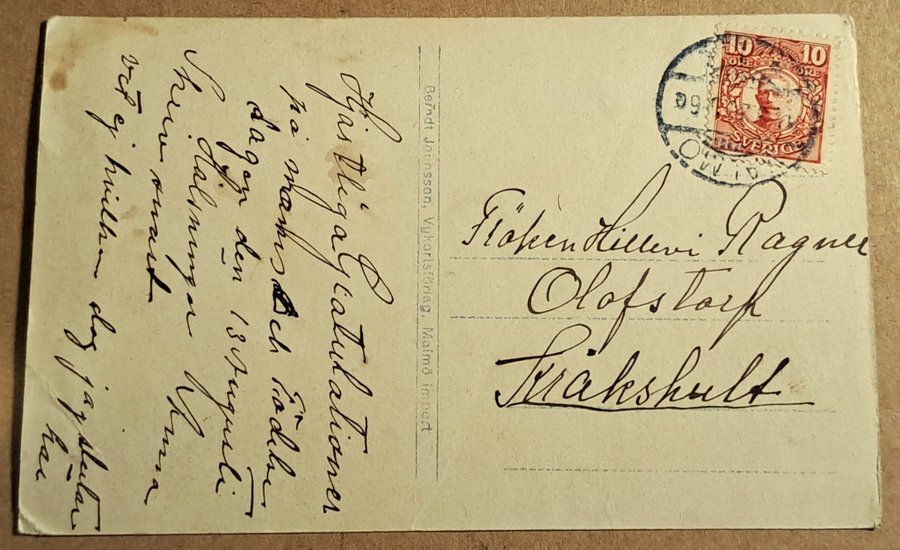 Hjärtliga Gratulationer
på namns och födelse
dagen den 13 Augusti
Hälsningar Anna
Skriv snart
vet ej hvilken dag jag slutar
här
Berndt Johnsson, Vykortsförlag, Malmö import
10 10
ÖRE ÖRE
SVERIGE
MALMÖ
Fröken Hillevi Ragner
Olofstorp
Kråkshult